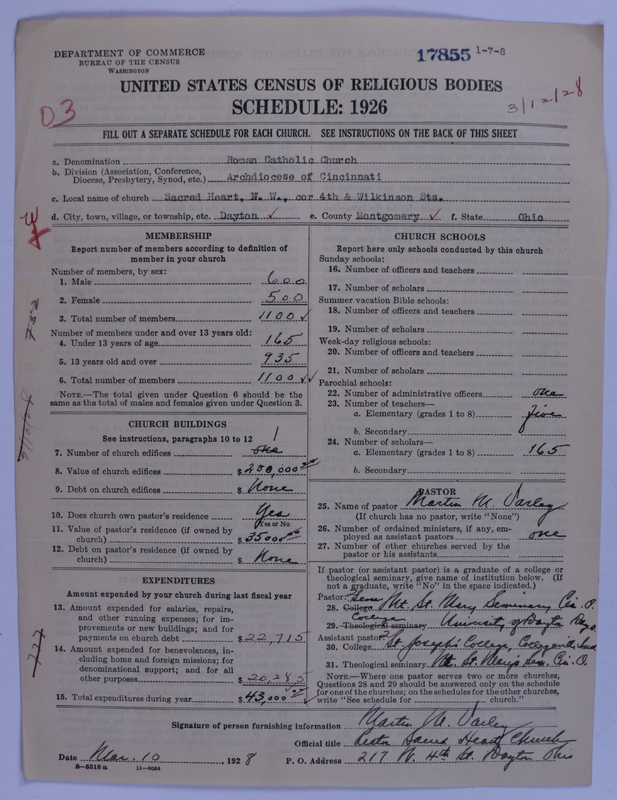 DEPARTMENT OF COMMERCE
BUREAU OF THE CENSUS
WASHINGTON
17855 1-7-8
UNITED STATES CENSUS OF RELIGIOUS BODIES
SCHEDULE: 1926
D3
3/12/28
FILL OUT A SEPARATE SCHEDULE FOR EACH CHURCH. SEE INSTRUCTIONS ON THE BACK OF THIS SHEET
a. Denomination Roman Catholic Church
b. Division (Association, Conference, Diocese, Presbytery, Synod, etc.) Archdiocese of Cincinnati
c. Local name of church Sacred Heart, N. W., cor 4th & Wilkinson Sts.
d. City, town, village, or township, etc. Dayton ✓ e. County Montgomery ✓ f. State Ohio
MEMBERSHIP
Report number of members according to definition of
member in your church
Number of members, by sex:
1. Male 600
2. Female 500
3. Total number of members 1100 ✓
Number of members under and over 13 years old:
4. Under 13 years of age 165
5. 13 years old and over 935
6. Total number of members 1100 ✓✓
NOTE.—The total given under Question 6 should be
same as the total of males and females given under Question 3.
CHURCH BUILDINGS
See instructions, paragraphs 10 to 12
7. Number of church edifices one 1
8. Value of church edifices $200,000
9. Debt on church edifices $ None
10. Does church own pastor's residence Yes
Yes or No
11. Value of pastor's residence (if owned by
church) $35000
12. Debt on pastor's residence (if owned by
church) $ None
EXPENDITURES
Amount expended by your church during last fiscal year
13. Amount expended for salaries, repairs,
and other running expenses; for im-
provements or new buildings; and for
payments on church debt $22,715
14. Amount expended for benevolences, in-
cluding home and foreign missions; for
denominational support; and for all
other purposes $20,285
15. Total expenditures during year $43,000 ✓
CHURCH SCHOOLS
Report here only schools conducted by this church
Sunday schools:
16. Number of officers and teachers
17. Number of scholars
Summer vacation Bible schools:
18. Number of officers and teachers
19. Number of scholars
Week-day religious schools:
20. Number of officers and teachers
21. Number of scholars
Parochial schools:
22. Number of administrative officers one
23. Number of teachers—
a. Elementary (grades 1 to 8) five
b. Secondary
24. Number of scholars—
a. Elementary (grades 1 to 8) 165
b. Secondary
PASTOR
25. Name of pastor Martin M. Varley
(If church has no pastor, write "None")
26. Number of ordained ministers, if any, em-
ployed as assistant pastors one
27. Number of other churches served by the
pastor or his assistants
If pastor (or assistant pastor) is a graduate of a college or
theological seminary, give name of institution below. (If
not a graduate, write "No" in the space indicated.)
Pastor: Sem
28. College Mt. St. Mary Seminary Cin. O.
College
29. Theological seminary University of Dayton
Assistant pastor:
30. College St. Joseph's College, Collegeville, Ind
31. Theological seminary Mt. St. Marys Sem. Cin. O
NOTE.—Where one pastor serves two or more churches,
Questions 28 and 29 should be answered only on the schedule
for one of the churches; on the schedules for the other churches,
write "See schedule for church."
Signature of person furnishing information Martin M. Varley
Official title Rector Sacred Heart Church
Date Mar. 10, 1928 P. O. Address 217 W. 4th St. Dayton Ohio
8-5518 a 11-9084
732
777